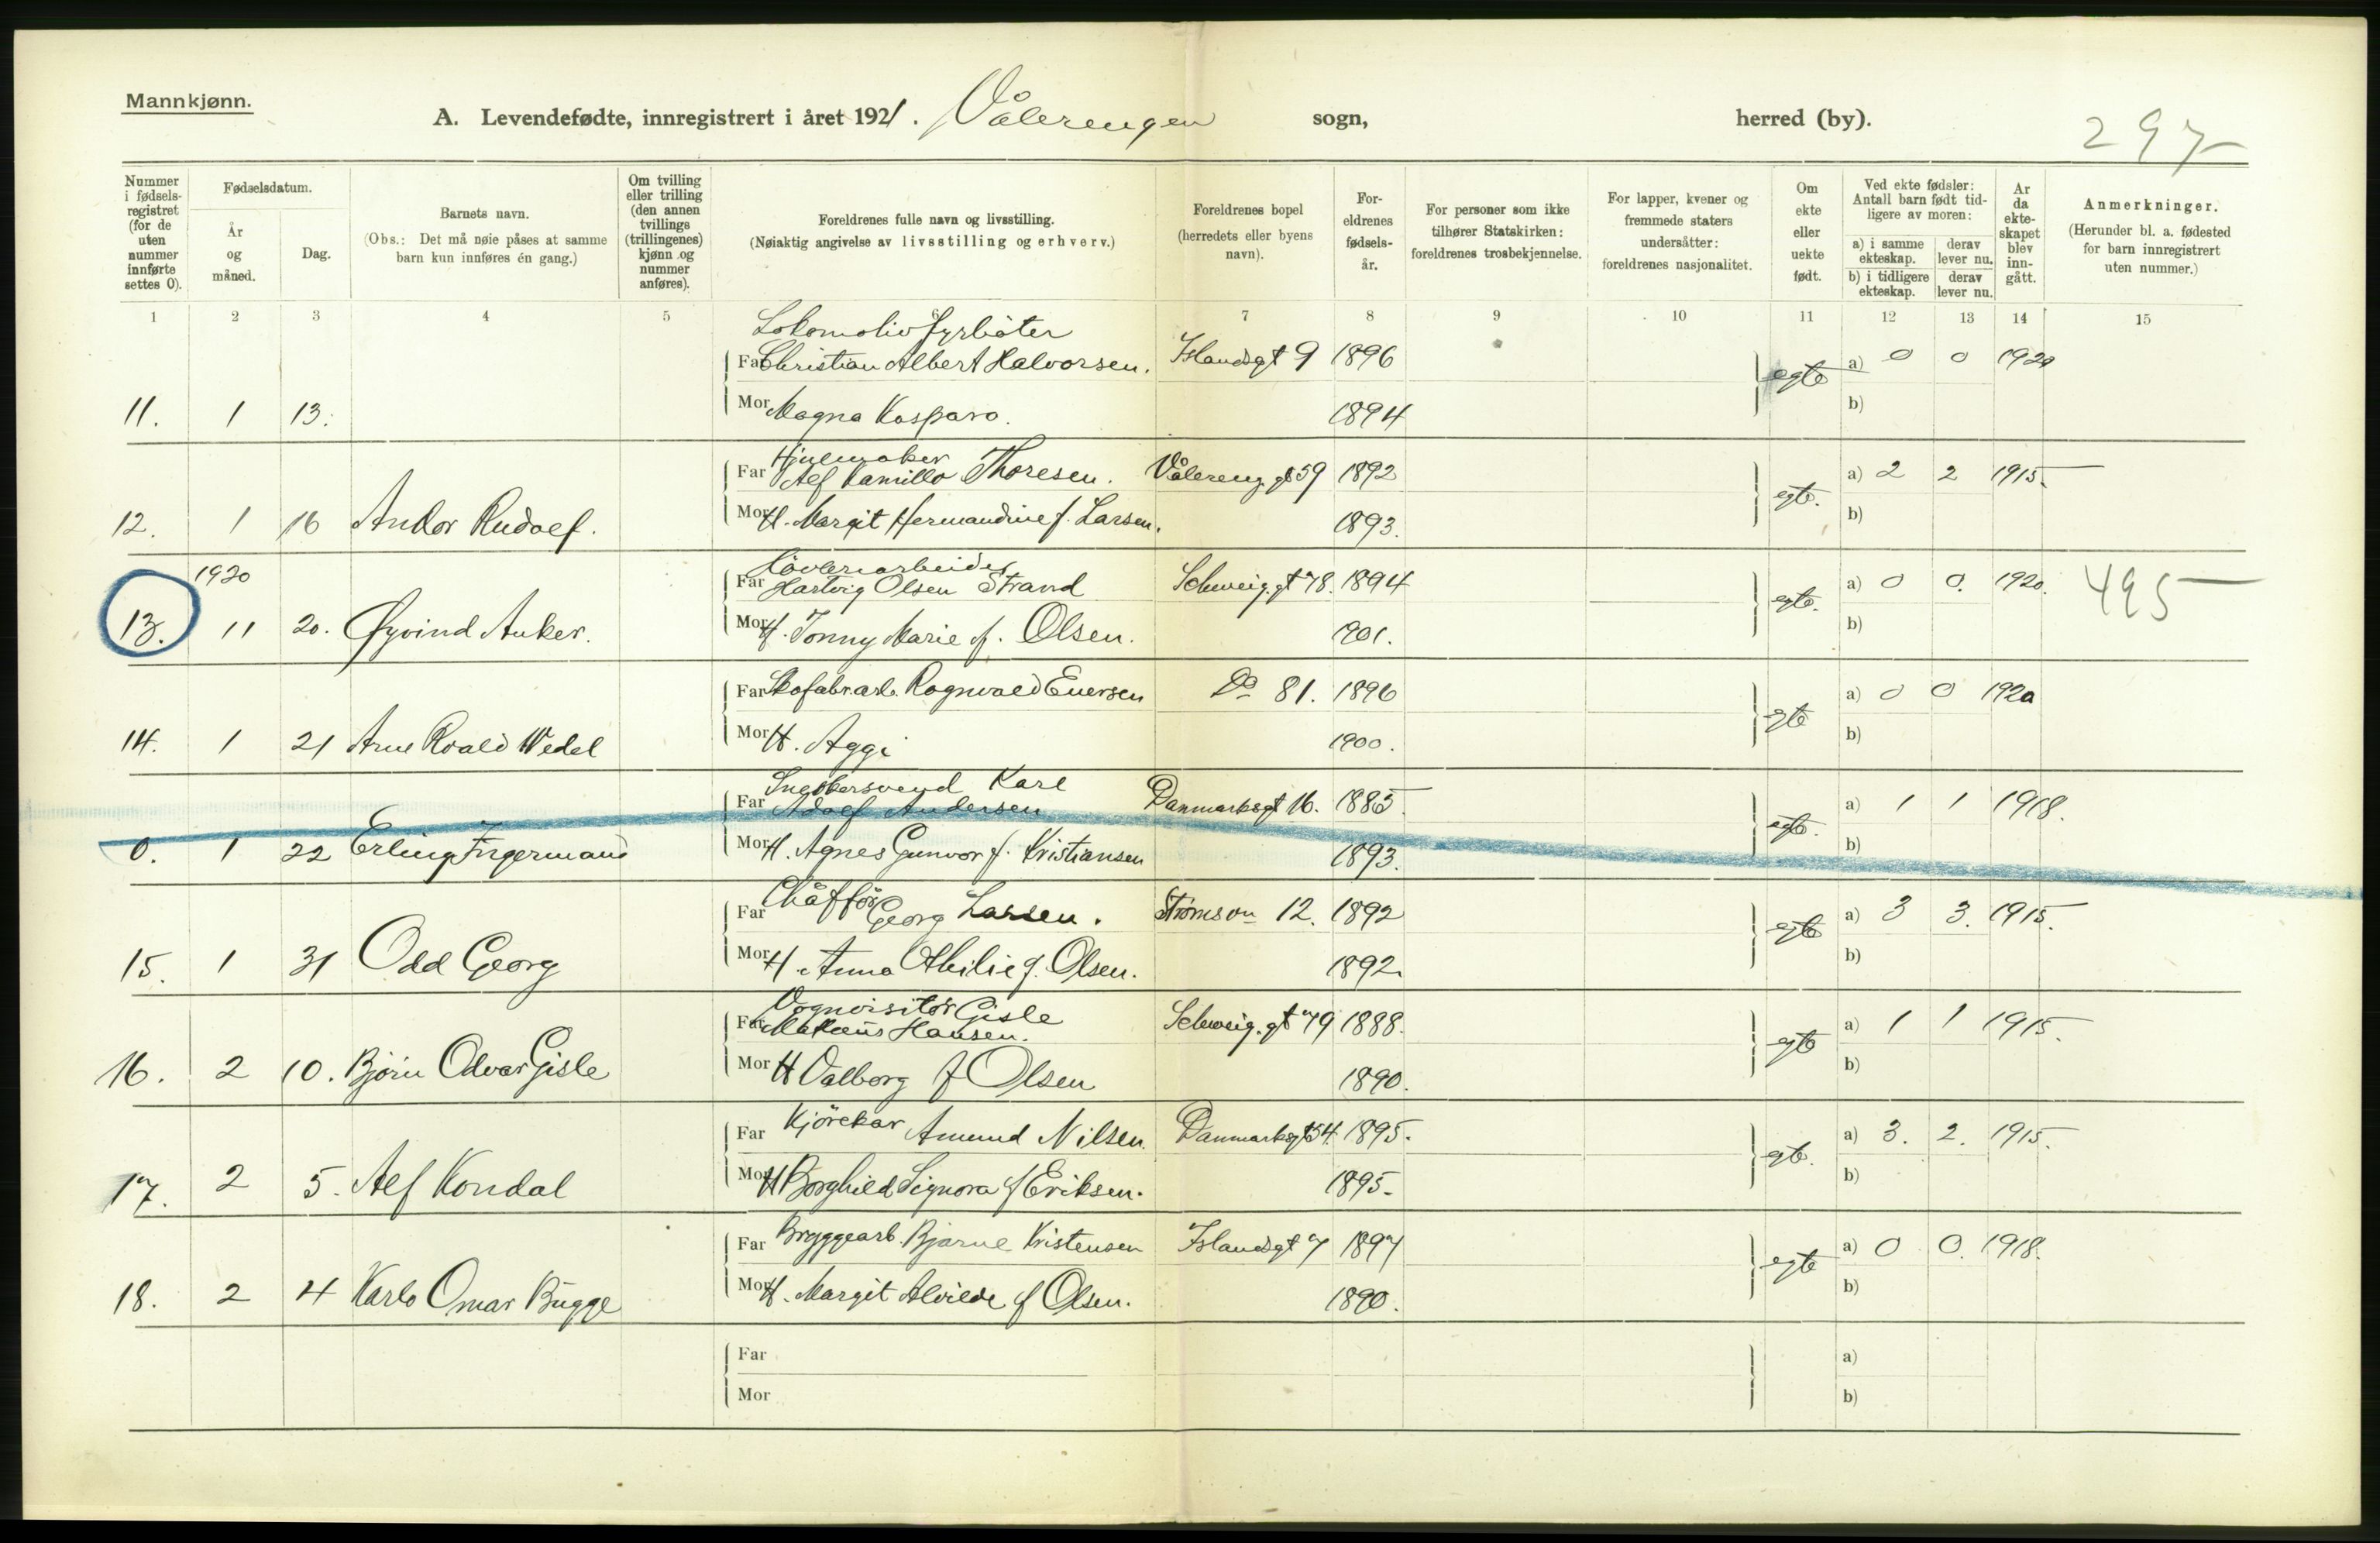 Mannkjønn.
A. Levendefødte, innregistrert i året 1921. Vålerengen sogn, herred (by).
297
Nummer i fødsels-registret (for de uten nummer innførte settes 0).
Fødselsdatum.
År og måned.
Dag.
Barnets navn.
(Obs.: Det må nøie påses at samme barn kun innføres én gang.)
Om tvilling eller trilling (den annen tvillings (trillingenes) kjønn og nummer anføres).
Foreldrenes fulle navn og livsstilling.
(Nøiaktig angivelse av livsstilling og erhverv.)
Foreldrenes bopel (herredets eller byens navn).
For-eldrenes fødsels-år.
For personer som ikke tilhører Statskirken: foreldrenes trosbekjennelse.
For lapper, kvener og fremmede staters undersåtter: foreldrenes nasjonalitet.
Om ekte eller uekte født.
Ved ekte fødsler: Antall barn født tid-ligere av moren:
a) i samme ekteskap. derav lever nu.
b) i tidligere ekteskap. derav lever nu.
Ar da ekte-skapet blev inn-gått.
Anmerkninger.
(Herunder bl. a. fødested for barn innregistrert uten nummer.)
1 2 3 4 5 6 7 8 9 10 11 12 13 14 15
Lokomotivfyrbøter
Far Christian Albert Halvorsen. Islandsgt 9 1896 egte a) 0 0 1920
11. 1 13. Mor Magna Kaspara. 1894 b)
Hjulmaker
Far Alf Kamillo Thoresen. Vålereng.gt 59 1892 egte. a) 2 2 1915.
12. 1 16 Andor Rudolf. Mor H. Margit Hermandine f. Larsen. 1893. b)
1920
Høvleriarbeider
Far Hartvig Olsen Strand Schweig.gt 78. 1894 egte. a) 0 0. 1920. 495
13. 11 20. Øyvind Anker. Mor H. Jonny Marie f. Olsen. 1901. b)
Far Skofabr.arb. Rognvald Evensen Do 81. 1896 egte a) 0 0 1920
14. 1 21 Arne Roald Wedel Mor H. Aggi 1900. b)
Snekkersvend Karl
Far Adolf Andersen Danmarksgt 16. 1885. egte. a) 1 1 1918.
0. 1 22 Erling Ingermann Mor H. Agnes Gunvor f. Kristiansen 1893. b)
Chåffør
Far Georg Larsen. Strømsvn 12. 1892 egte a) 3 3. 1915.
15. 1 31 Odd Georg Mor H. Anna Othilie f. Olsen. 1892. b)
Vognvisitør Gisle
Far Hansen. Schweig.gt 79 1888. egte a) 1 1 1915.
16. 2 10. Bjørn Odvar Gisle Mor H Valborg f Olsen 1890. b)
Far Kjørekar Amund Nilsen. Danmarksgt 54. 1895. egte. a) 3. 2. 1915.
17. 2 5. Alf Kondal Mor H Borghild Signora f Eriksen. 1895. b)
Far Bryggearb. Bjarne Kristensen Islandsgt 7 1897 egte a) 0 0. 1918.
18. 2 4 Karlo Omar Bugge Mor H. Margit Alvilde f Olsen. 1890. b)
Far a)
Mor b)